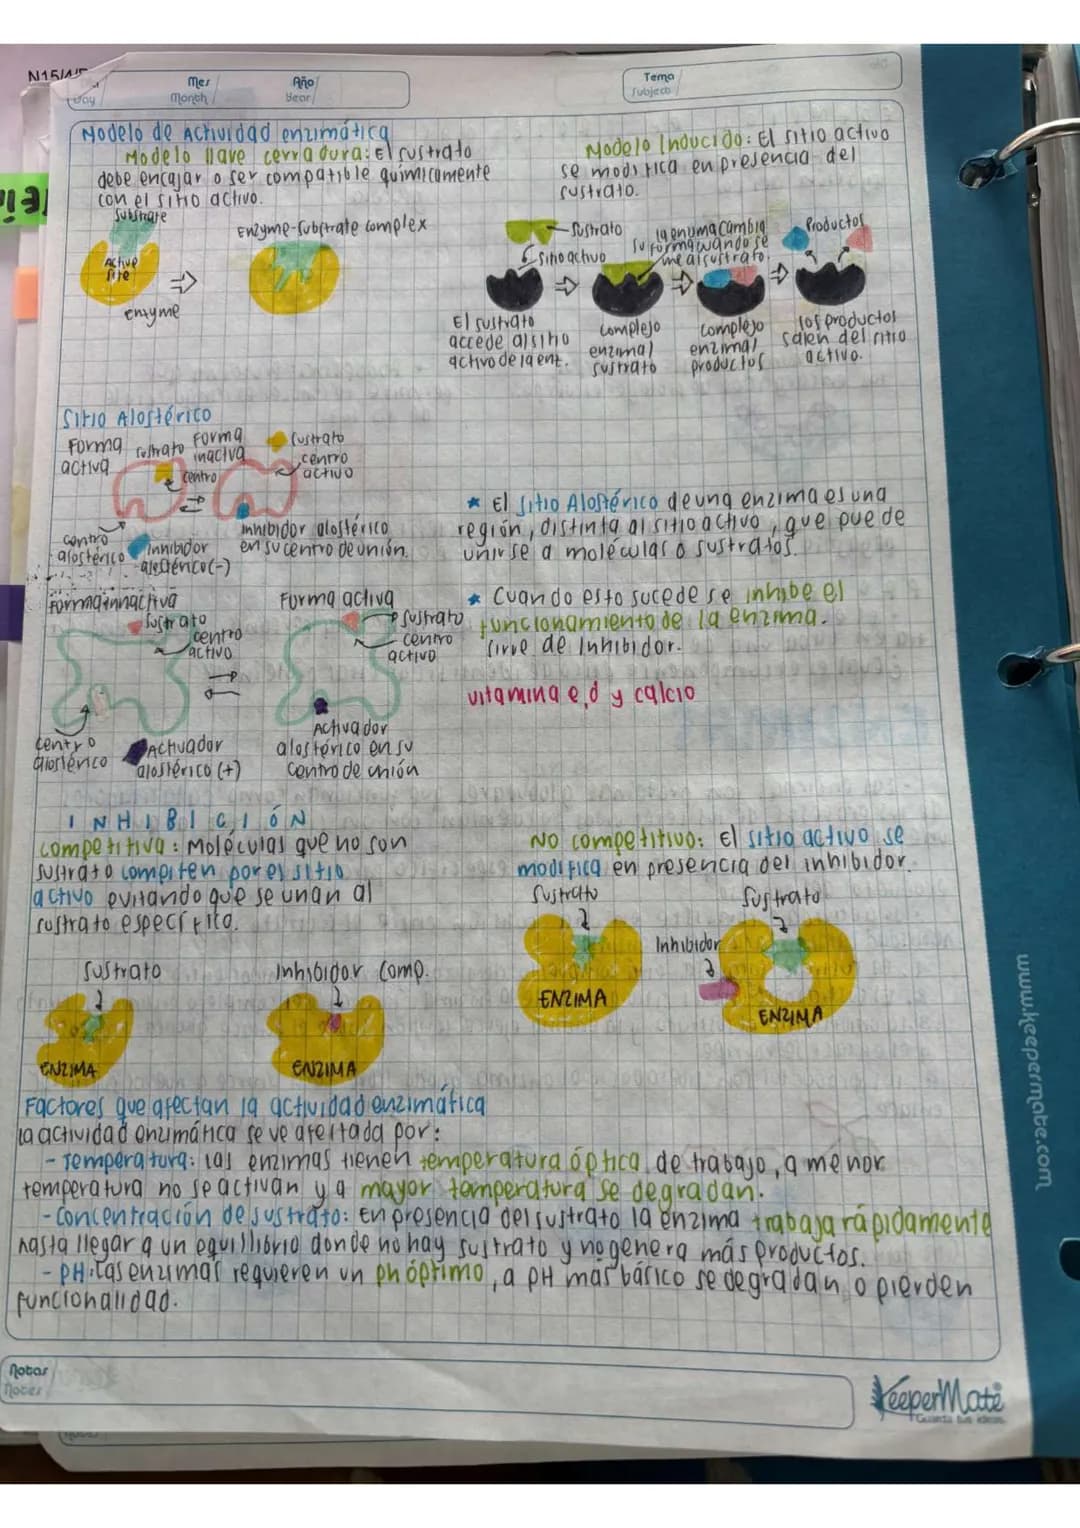 N15/4/
Day
Mes
Month
Año
Year
Tema
Subject
Modelo de Actividad enzimática
Modelo llave cerradura: El sustrato
debe encajar o ser compatible químicamente
con el sitio activo.
Substrate
Active
site
enzyme
Enzyme-Substrate complex
Modelo Inducido: El sitio activo
se modifica en presencia del
sustrato.
Sustrato
Sitio activo
la enzima cambia
su forma cuando se
une al sustrato.
Productos
El sustrato
accede al sitio
activo de la enz.
complejo
enzima/
sustrato
complejo
enzima/
productos
los productos
salen del sitio
activo.
Sitio Alostérico
Forma
activa
sustrato
centro
Forma
inactiva
Sustrato
centro
activo
centro
alostérico
Inhibidor
alostérico (-)
Inhibidor alostérico
en su centro de unión.
★ El Sitio Alostérico de una enzima es una
región, distinta al sitio activo, que puede
unirse a moléculas o sustratos.
Forma innactiva
sustrato
centro
activo
centro
alostérico
Activador
alostérico (+)
Forma activa
sustrato
centro
activo
Activador
alostérico en su
Centro de unión
★ Cuando esto sucede se inhibe el
funcionamiento de la enzima.
sirve de Inhibidor.
vitamina e, d y calcio
INHIBICIÓN
competitiva: Moléculas que no son
sustrato compiten por el sitio
activo evitando que se unan al
sustrato específico.
Sustrato
ENZIMA
Inhibidor Comp.
ENZIMA
No competitivo: El sitio activo se
modifica en presencia del inhibidor.
Sustrato
ENZIMA
Sustrato
Inhibidor
ENZIMA
Factores que afectan la actividad enzimática
La actividad enzimática se ve afectada por:
- Temperatura: las enzimas tienen temperatura óptica de trabajo, a menor
temperatura no se activan y a mayor temperatura se degradan.
- Concentración de sustrato: En presencia del sustrato la enzima trabaja rápidamente
hasta llegar a un equilibrio donde no hay sustrato y no genera más productos.
- PH: Las enzimas requieren un ph óptimo, a pH más básico se degradan o pierden
funcionalidad.
Notas
Notes
KeeperMate
Guarda tus ideas
www.keepermate.com